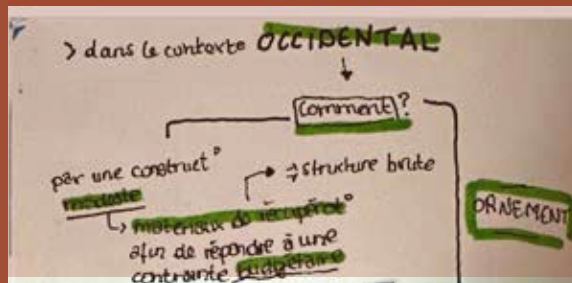 > dans le contexte OCCIDENTAL
Comment?
par une construct°
modeste
→ structure brute
matériaux de récupérat°
afin de répondre à une
contrainte budgétaire
ORNEMENT